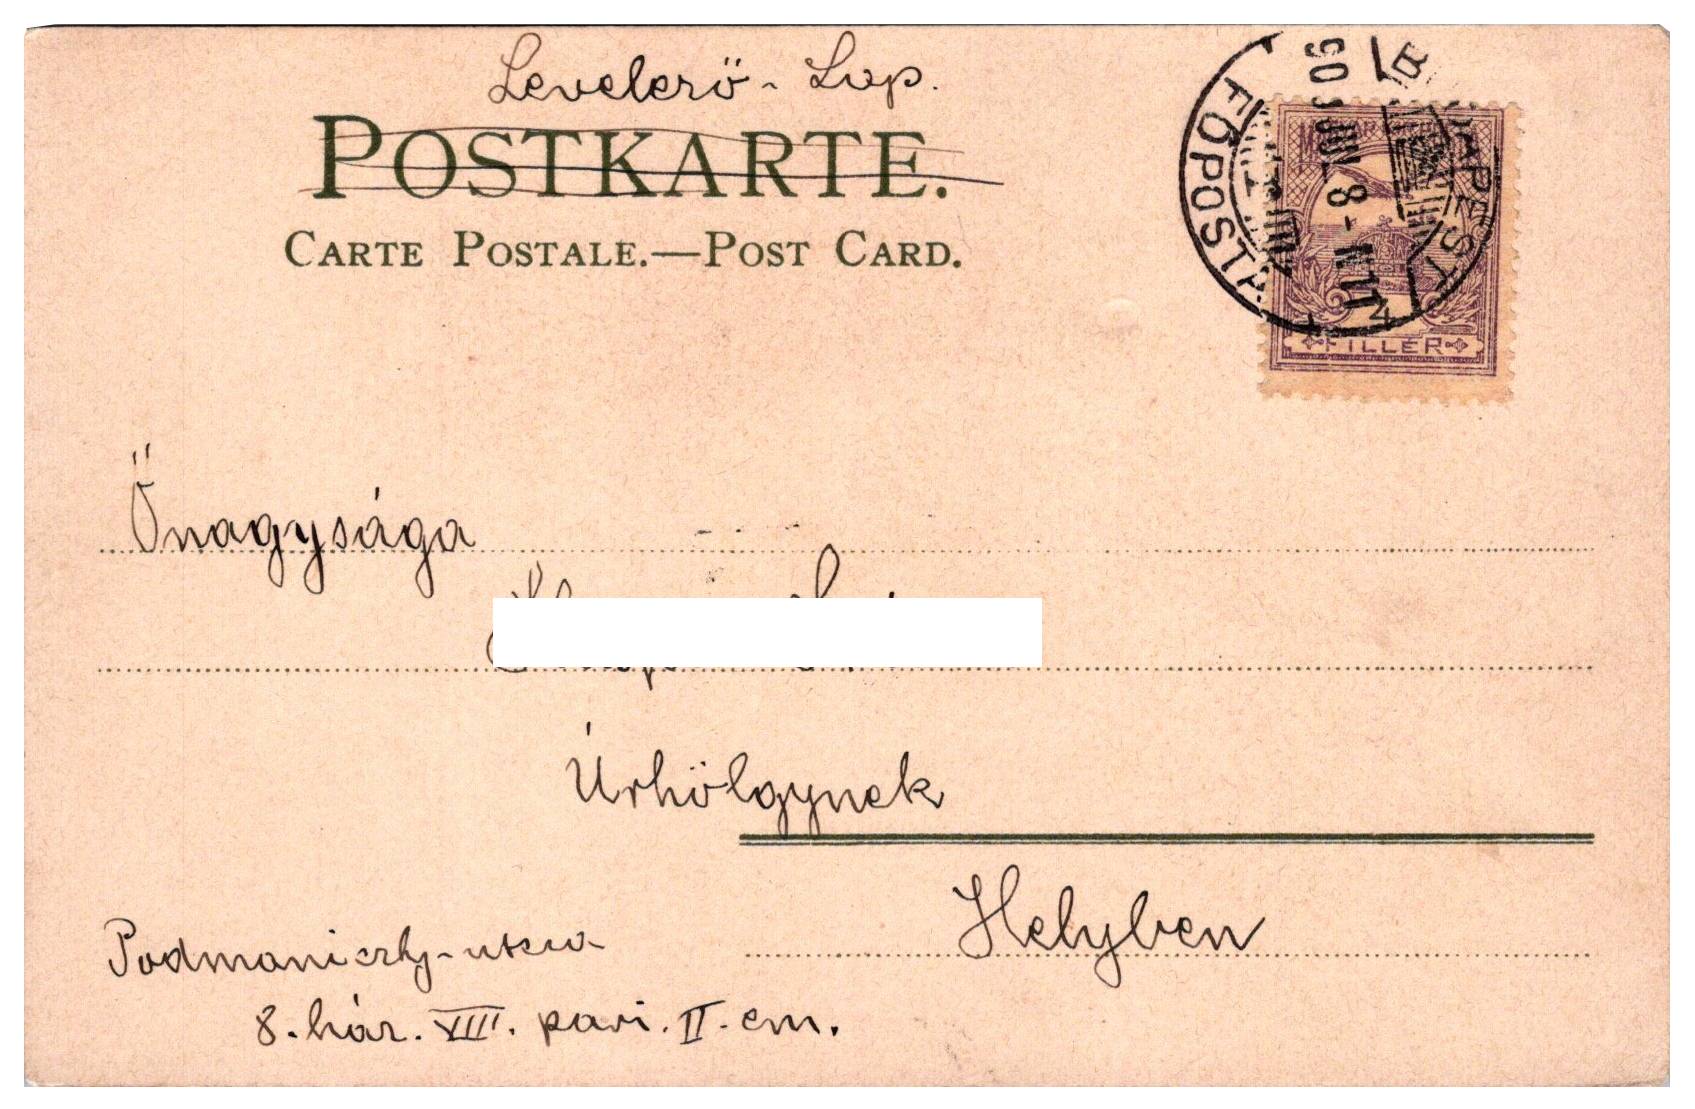 Levelező-Lap.
POSTKARTE.
CARTE POSTALE.—POST CARD.
BUDAPEST
FŐPOSTA
905 JUN. 8-N.11
4
FILLÉR
Őnagysága
Úrhölgynek
Helyben
Podmaniczky-utcza
8. hár. VIII. II. em.